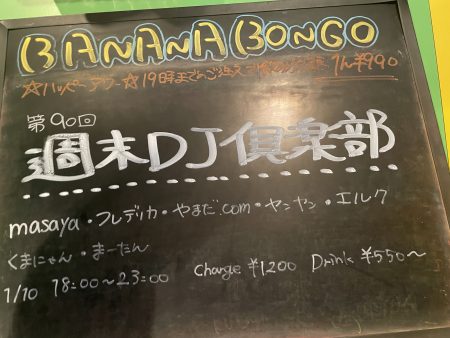 BANANA BONGO
☆ハッピーアワー☆19時までのご注文 1h¥990
第90回
週末DJ倶楽部
masaya・フレデリカ・やまだ.com・ヤンヤン・エルク
くまにゃん・まーたん
1/10 18:00〜23:00 Charge ¥1200 Drink ¥550〜